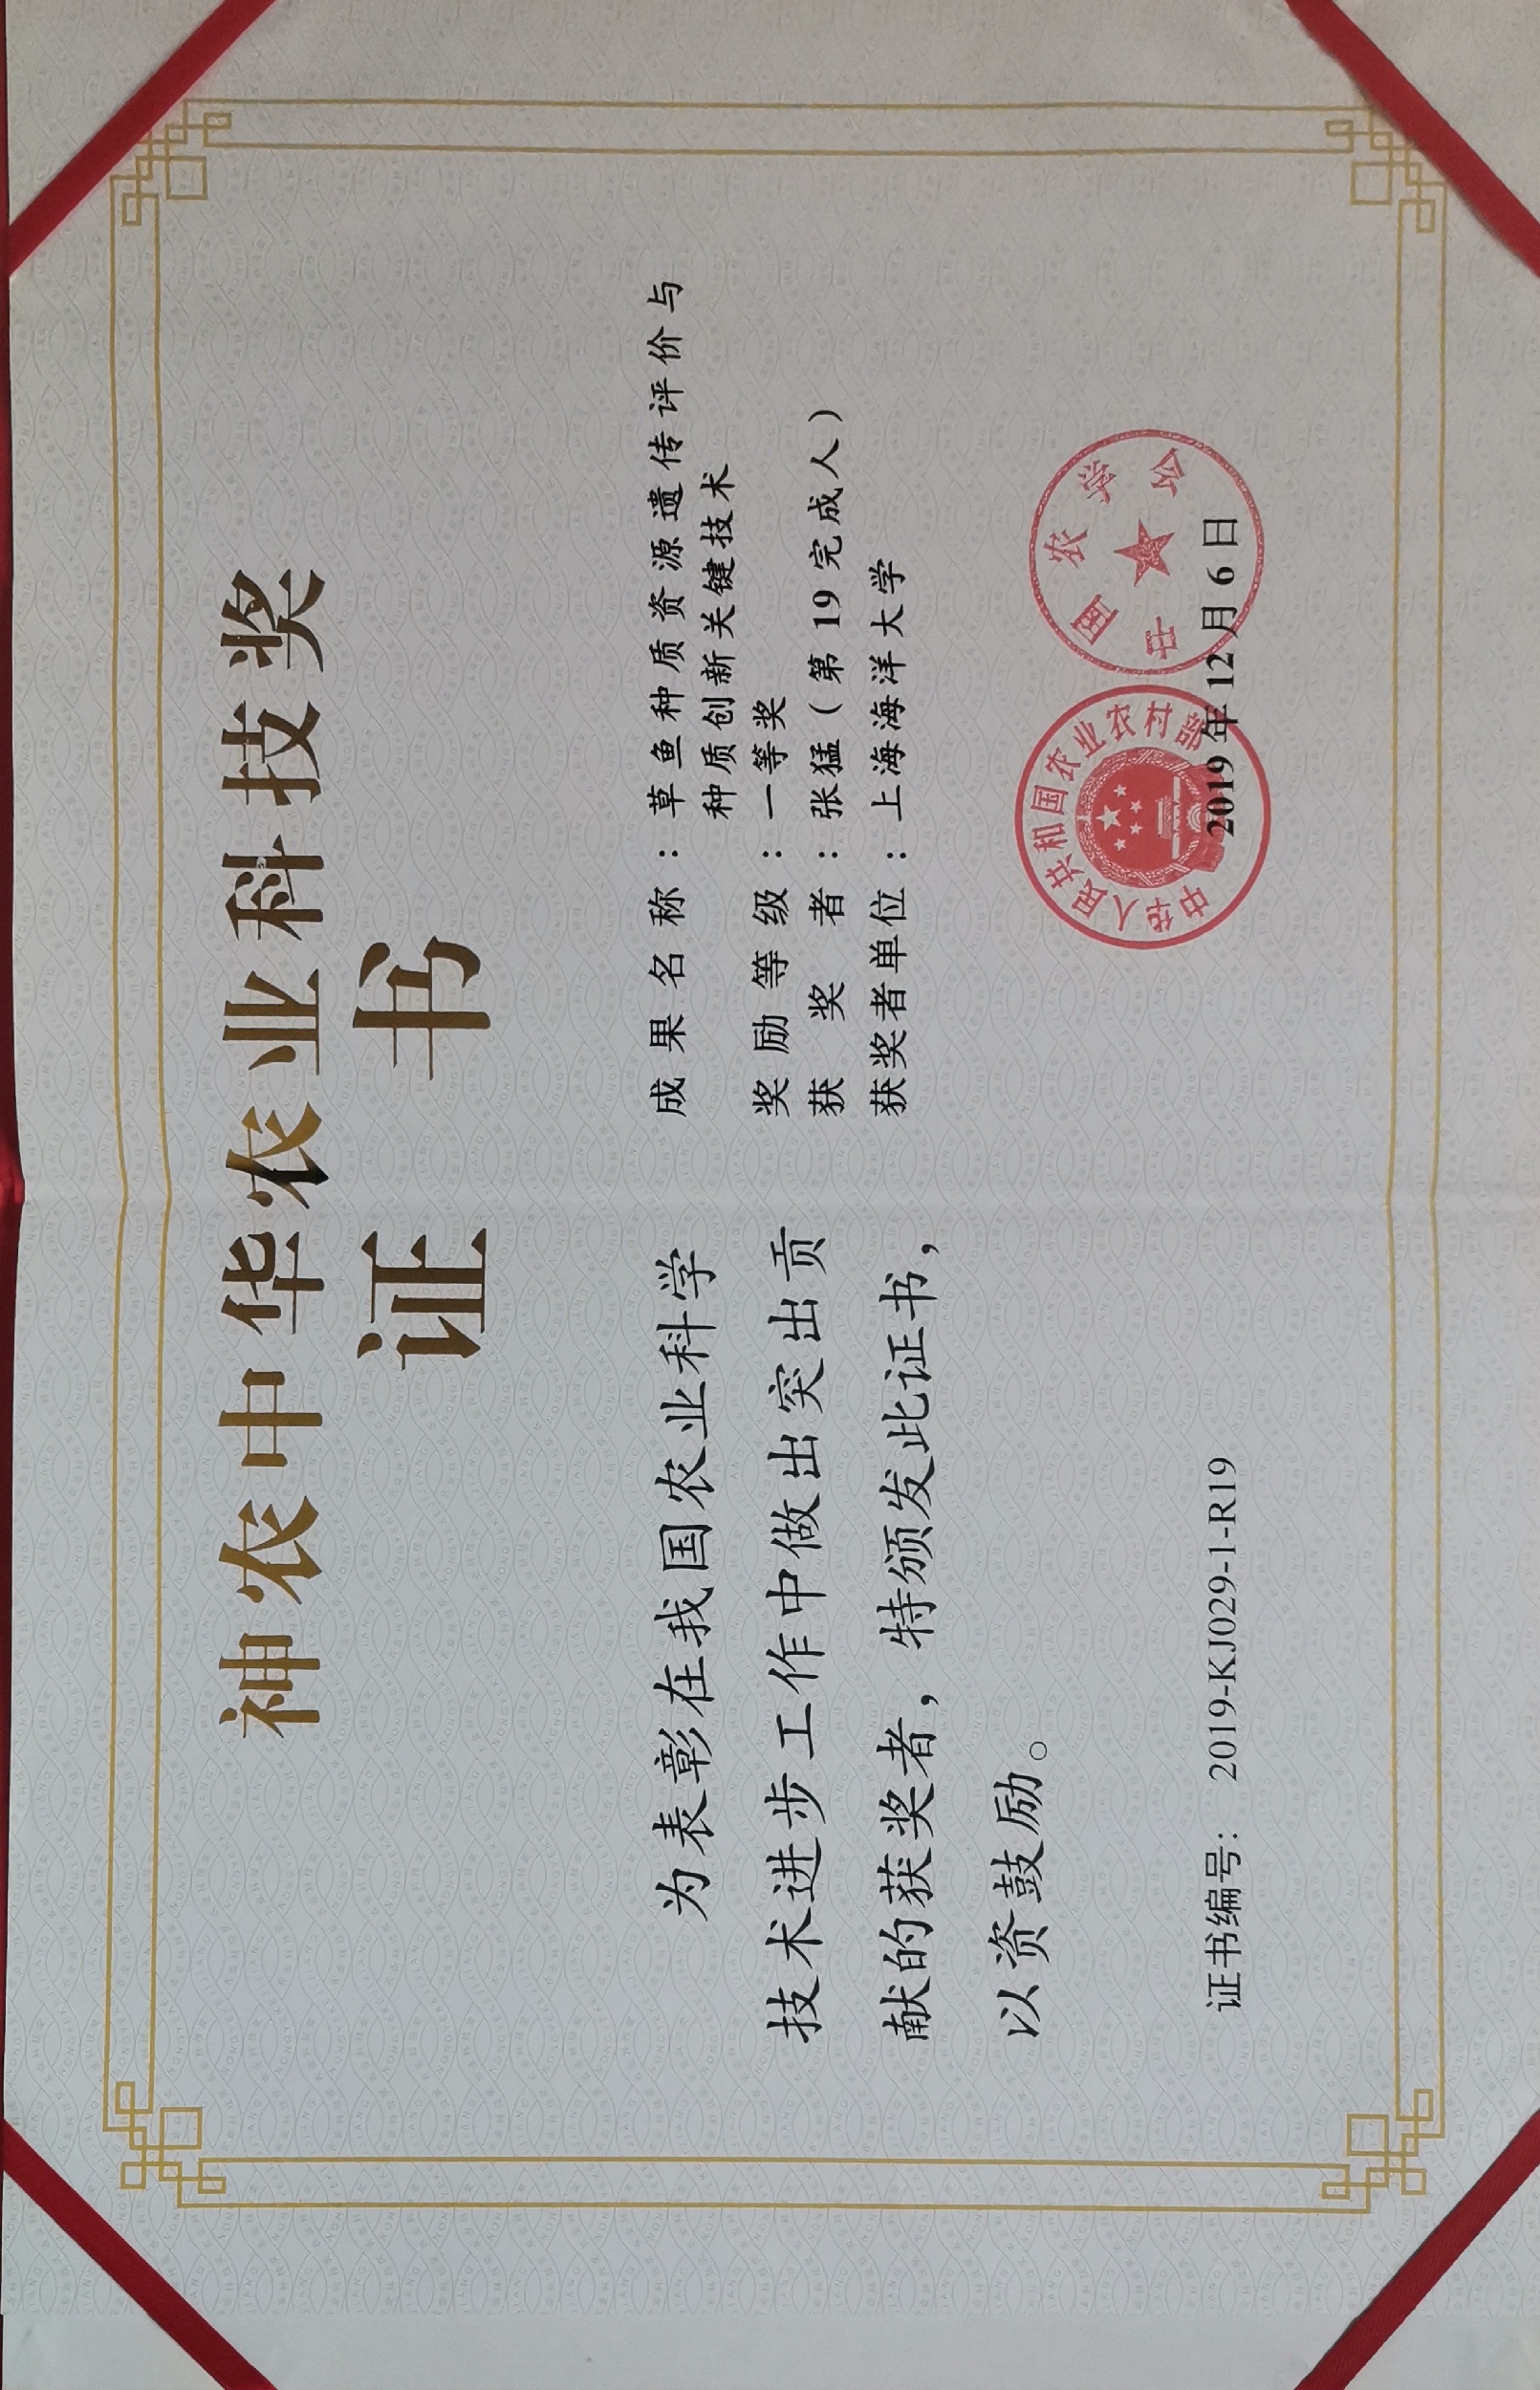 神农中华农业科技奖
证 书
为表彰在我国农业科学
技术进步工作中做出突出贡
献的获奖者，特颁发此证书，
以资鼓励。
证书编号：2019-KJ029-1-R19
成果名称：草鱼种质资源遗传评价与
种质创新关键技术
奖励等级：一等奖
获奖者：张猛（第19完成人）
获奖者单位：上海海洋大学
中华人民共和国农业农村部
中国农学会
2019年12月6日